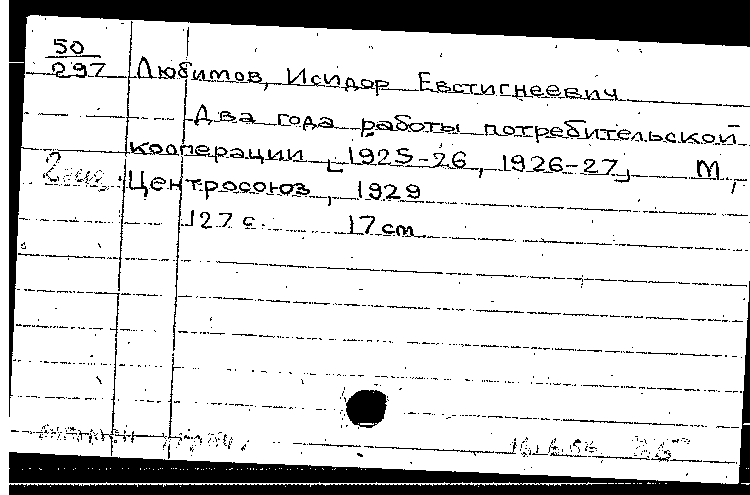 50
297 Любимов, Исидор Евстигнеевич
Два года работы потребительской
кооперации [1925-26, 1926-27] М,
2 экз. Центросоюз, 1929
127 с. 17 cm